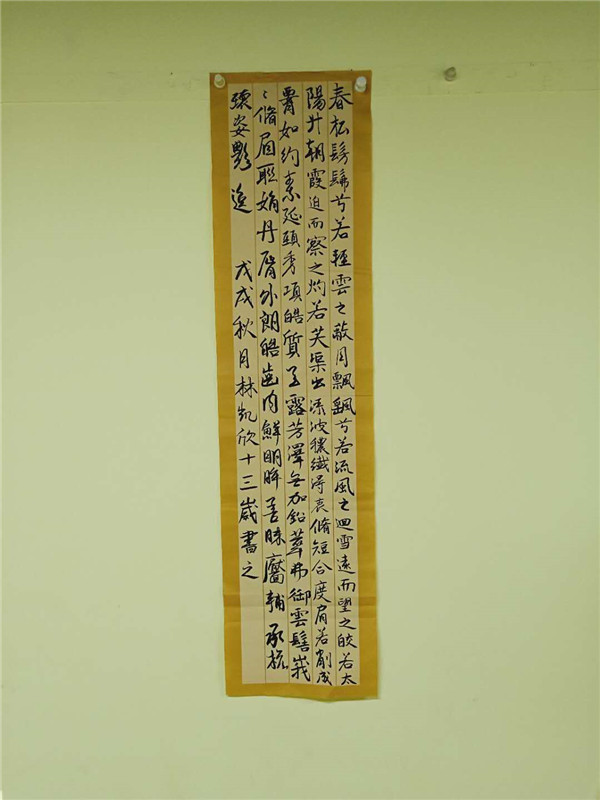 春松髣髴兮若輕雲之蔽月飄飖兮若流風之迴雪遠而望之皎若太
陽升朝霞迫而察之灼若芙渠出淥波穠纖得衷脩短合度肩若削成
腰如約素延頸秀項皓質呈露芳澤無加鉛華弗御雲髻峩
〻脩眉聯娟丹脣外朗皓齒内鮮明眸善睞靨輔承權
瓌姿艷逸 戊戌秋月林凯欣十三歲書之